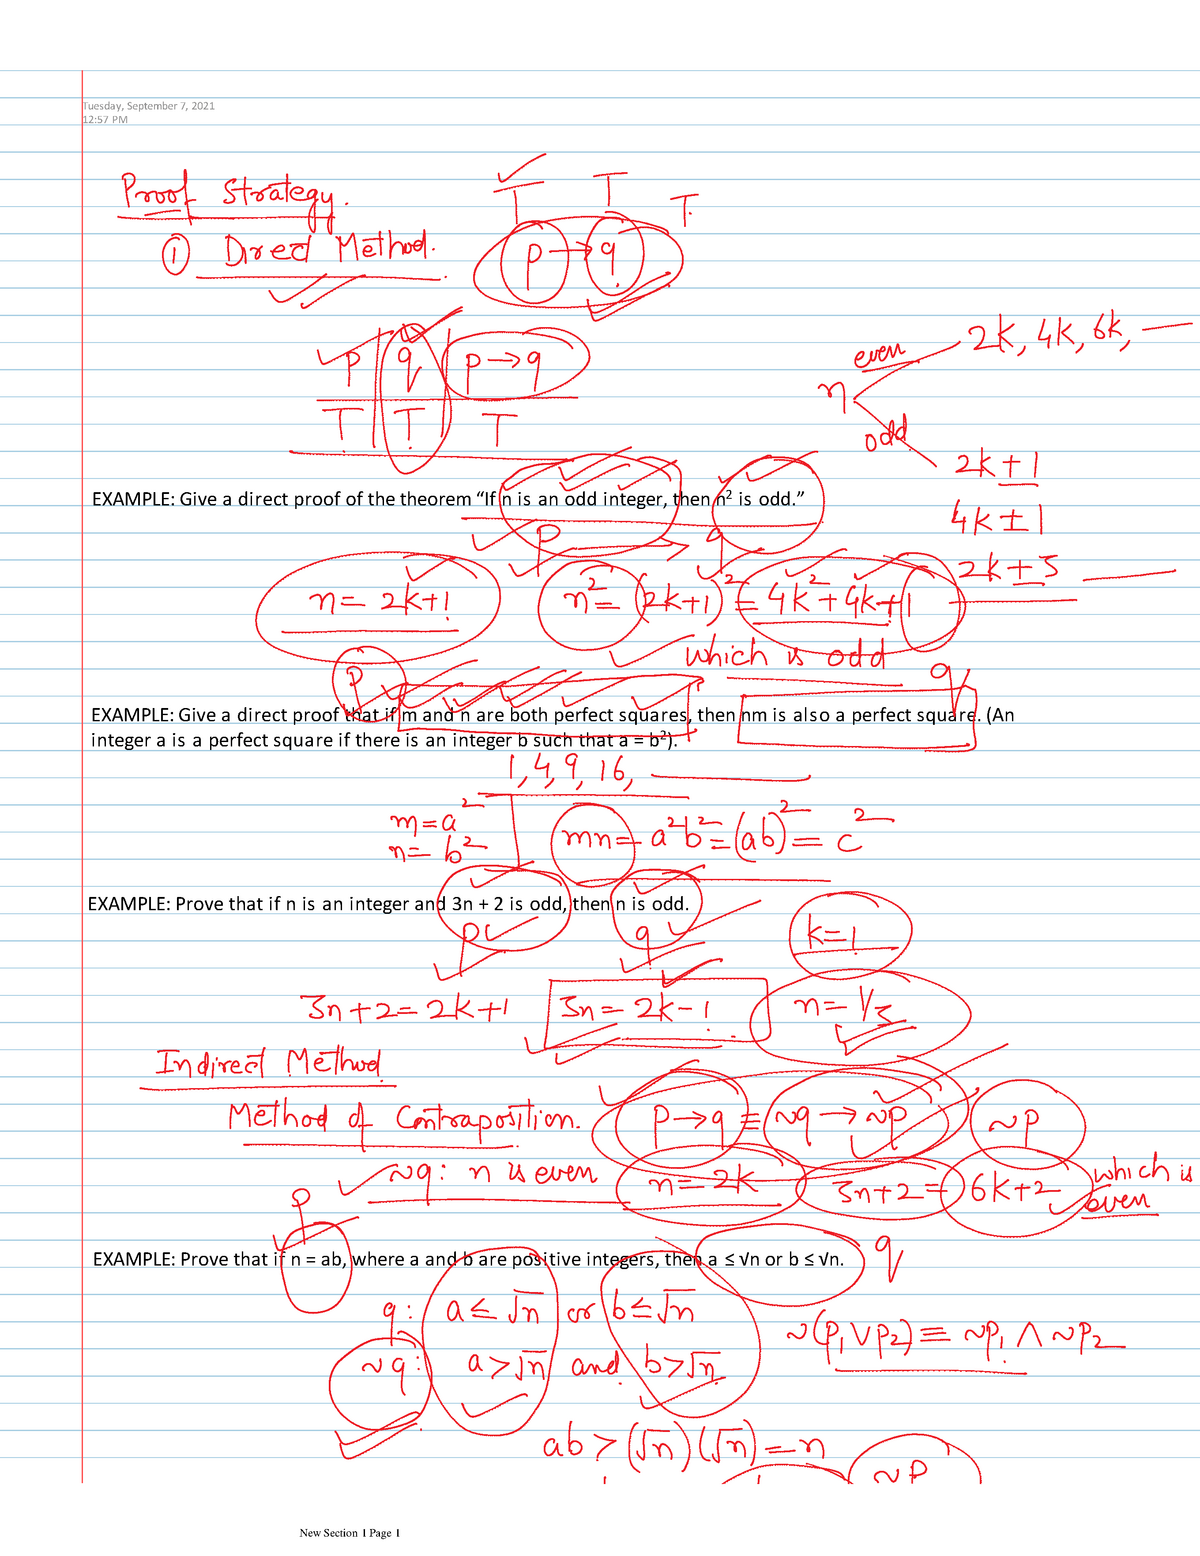 Tuesday, September 7, 2021
12:57 PM
Proof Strategy.
① Direct Method.
T T T
p → q
p q p → q
T T T
n even 2k, 4k, 6k, —
odd 2k+1
4k±1
2k±3 —
EXAMPLE: Give a direct proof of the theorem “If n is an odd integer, then n² is odd.”
p → q
n = 2k+1 n² = (2k+1)² = 4k²+4k+1
which is odd
p q
EXAMPLE: Give a direct proof that if m and n are both perfect squares, then nm is also a perfect square. (An
integer a is a perfect square if there is an integer b such that a = b²).
1, 4, 9, 16, —
m = a²
n = b² mn = a²b² = (ab)² = c²
EXAMPLE: Prove that if n is an integer and 3n + 2 is odd, then n is odd.
p q k=1
3n+2 = 2k+1 3n = 2k-1 n = 1/3
Indirect Method
Method of Contraposition. p → q ≡ ~q → ~p ~p
~q: n is even n = 2k 3n+2 = 6k+2 which is even
p
EXAMPLE: Prove that if n = ab, where a and b are positive integers, then a ≤ √n or b ≤ √n.
q
q: a ≤ √n or b ≤ √n
~(p₁ ∨ p₂) ≡ ~p₁ ∧ ~p₂
~q: a > √n and b > √n
ab > (√n)(√n) = n
~p
New Section 1 Page 1